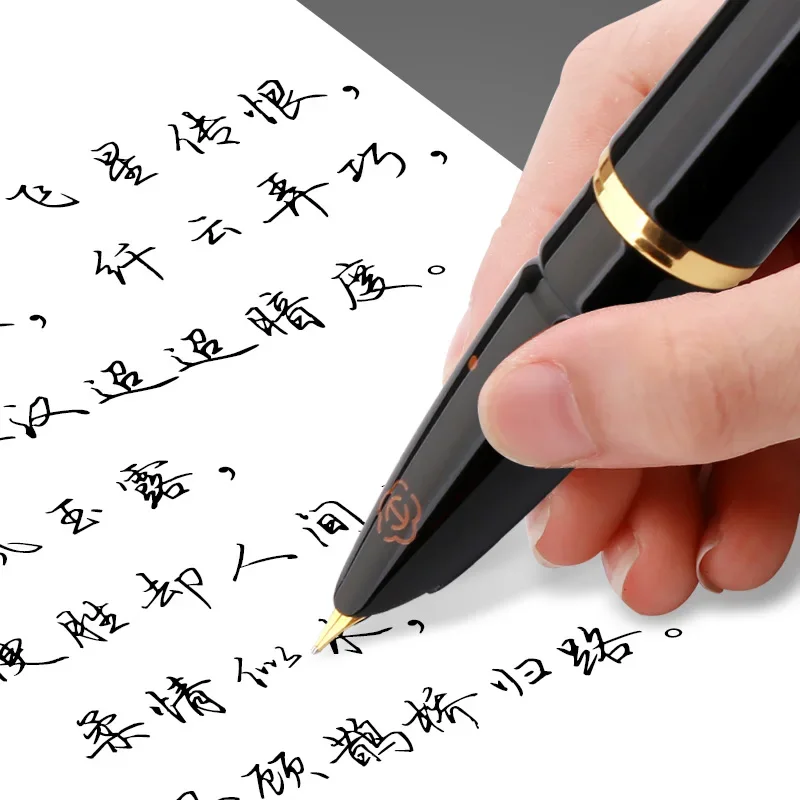 飞星传恨，
纤云弄巧，
汉迢迢暗度。
玉露，
便胜却人间
柔情似水，
顾鹊桥归路。